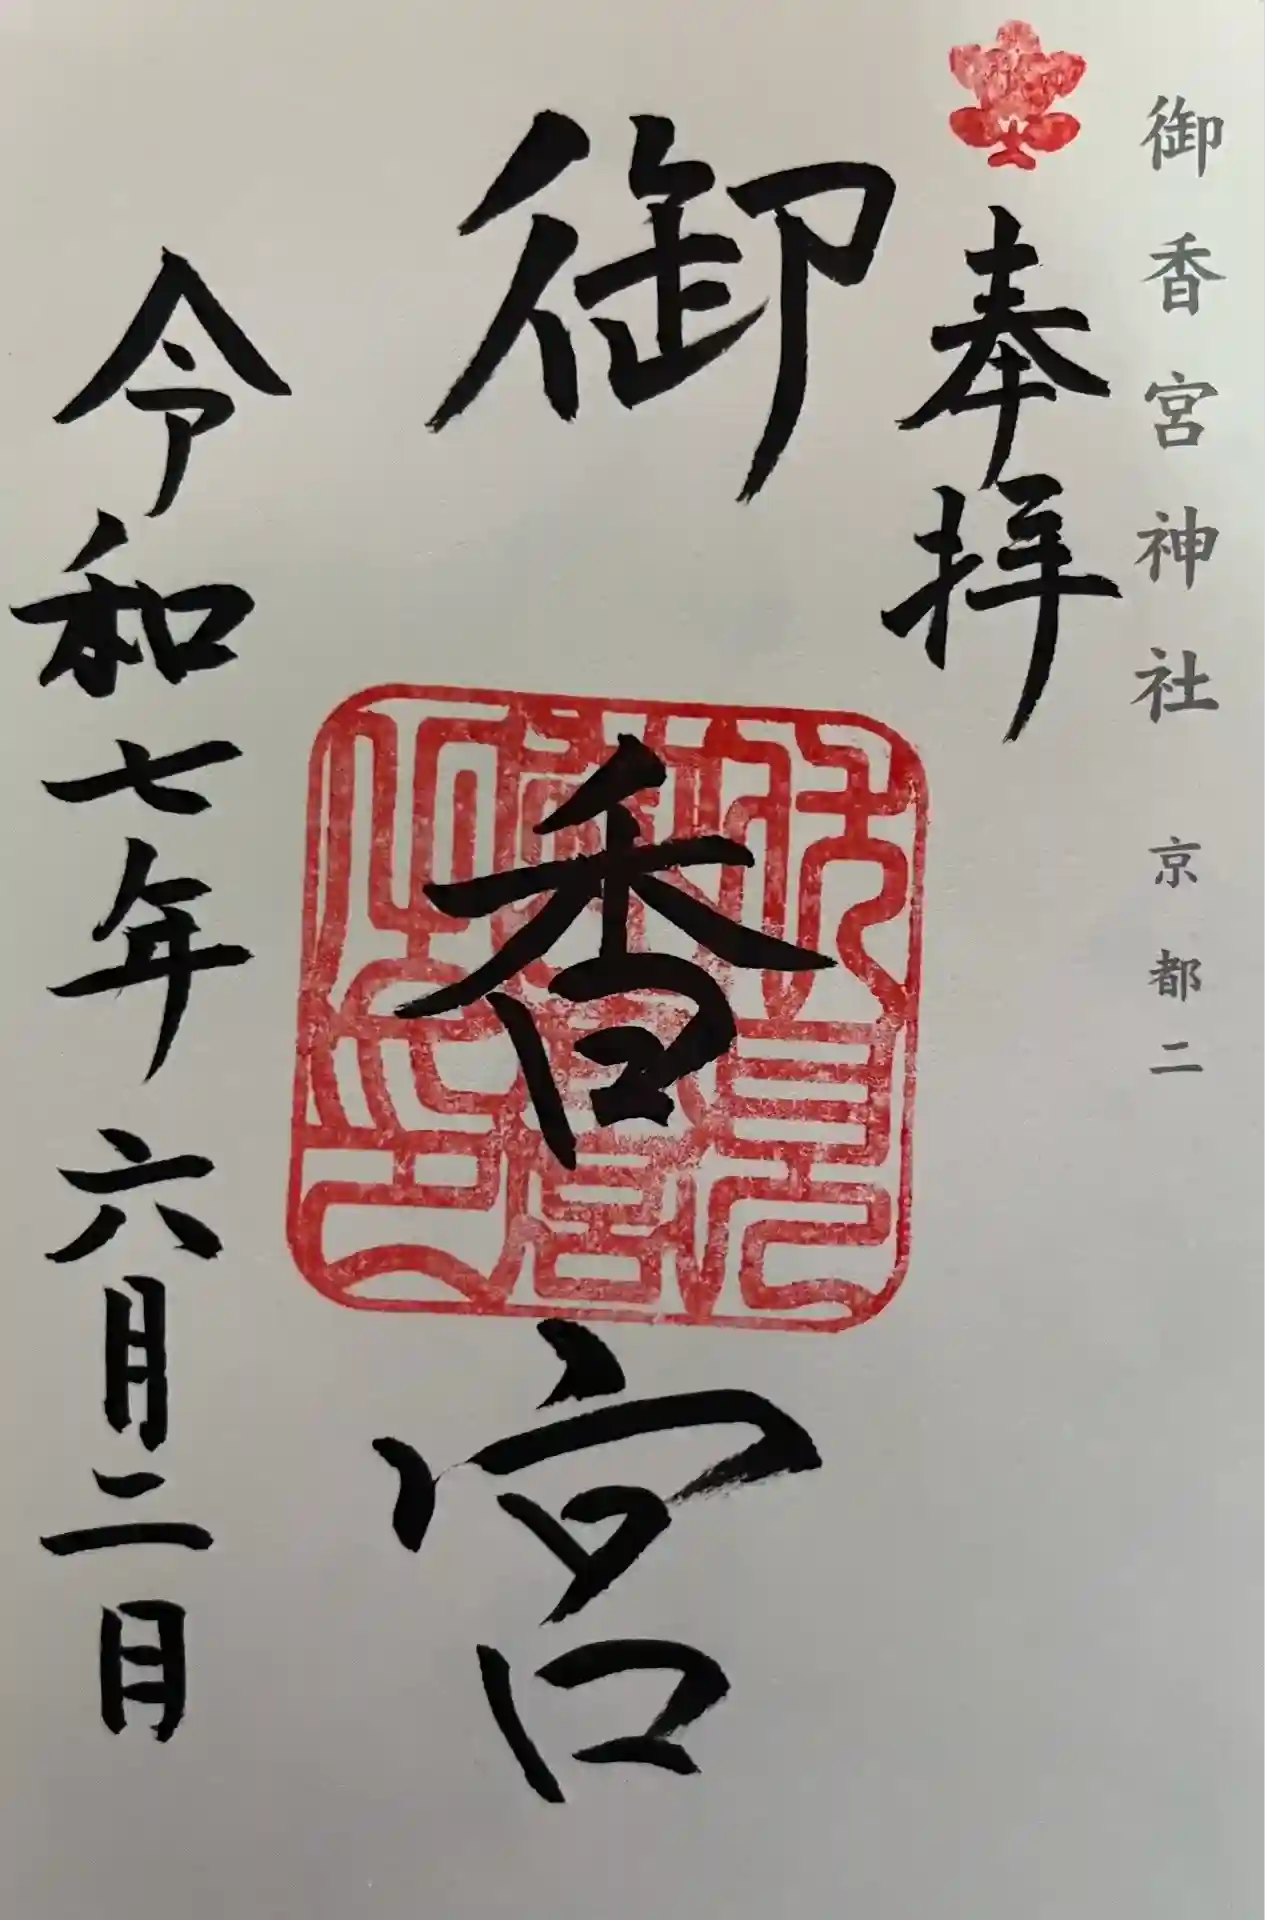 御香宮神社 京都二
奉拝
御香宮
令和七年六月二日